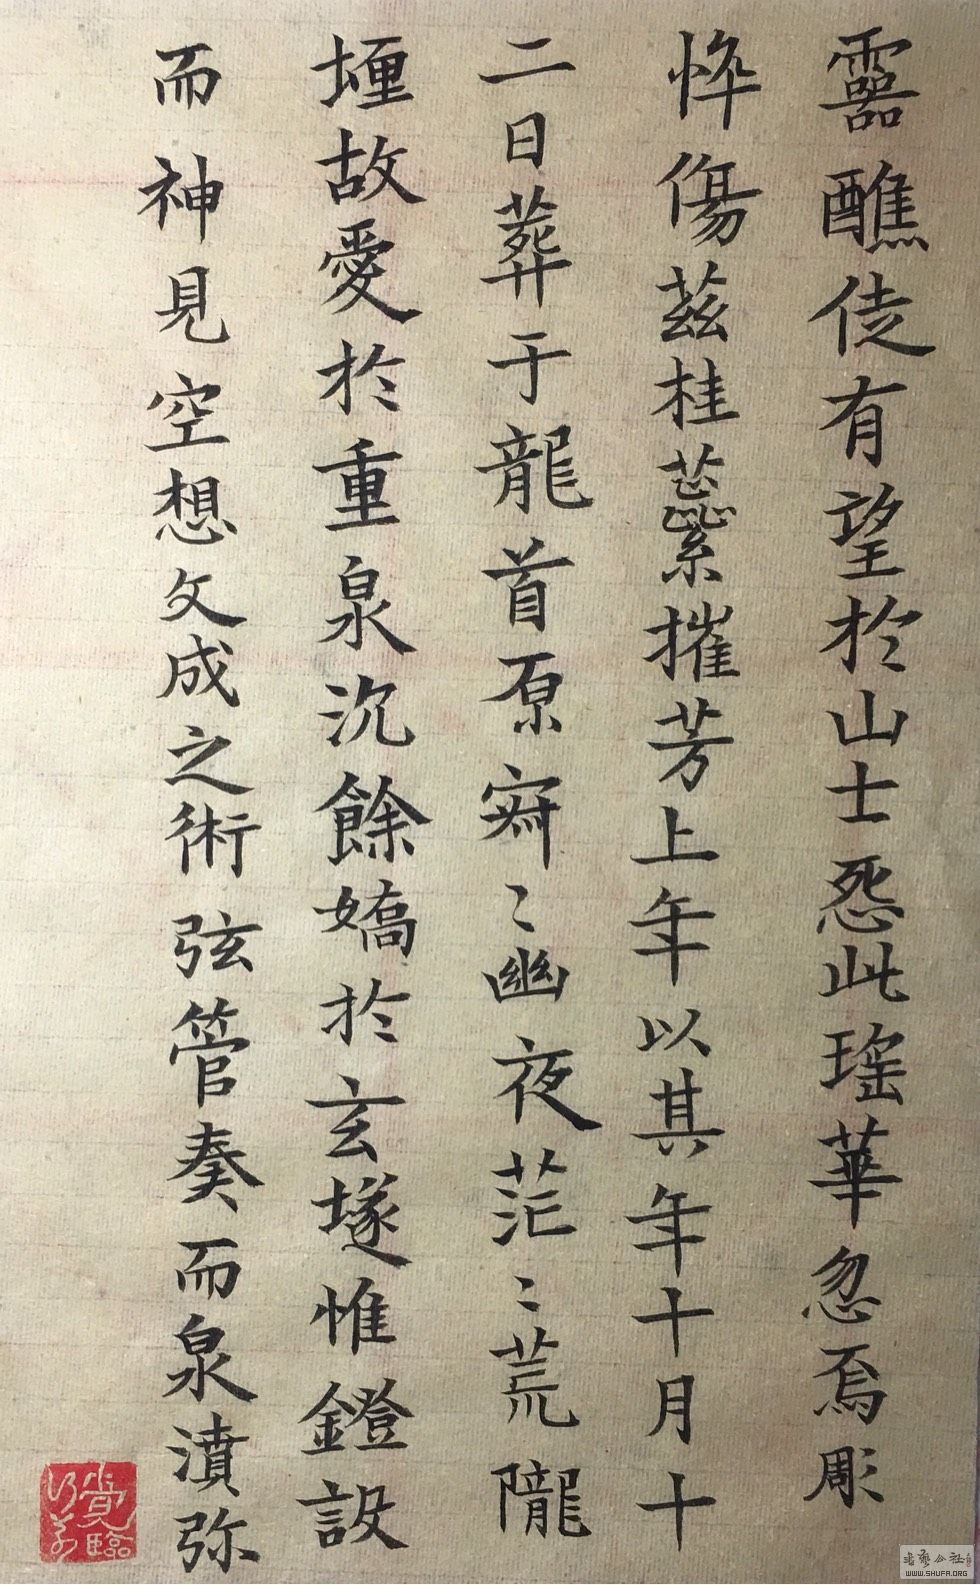 靈醮徒有望於山士怨此瑤華忽焉彫
悴傷茲桂蘂摧芳上年以其年十月十
二日葬于龍首原寂〻幽夜茫〻荒隴
堙故愛於重泉沉餘嬌於玄墜惟鐙設
而神見空想文成之術弦管奏而泉濆弥
覺臨
書藝公社
WWW.SHUFA.ORG